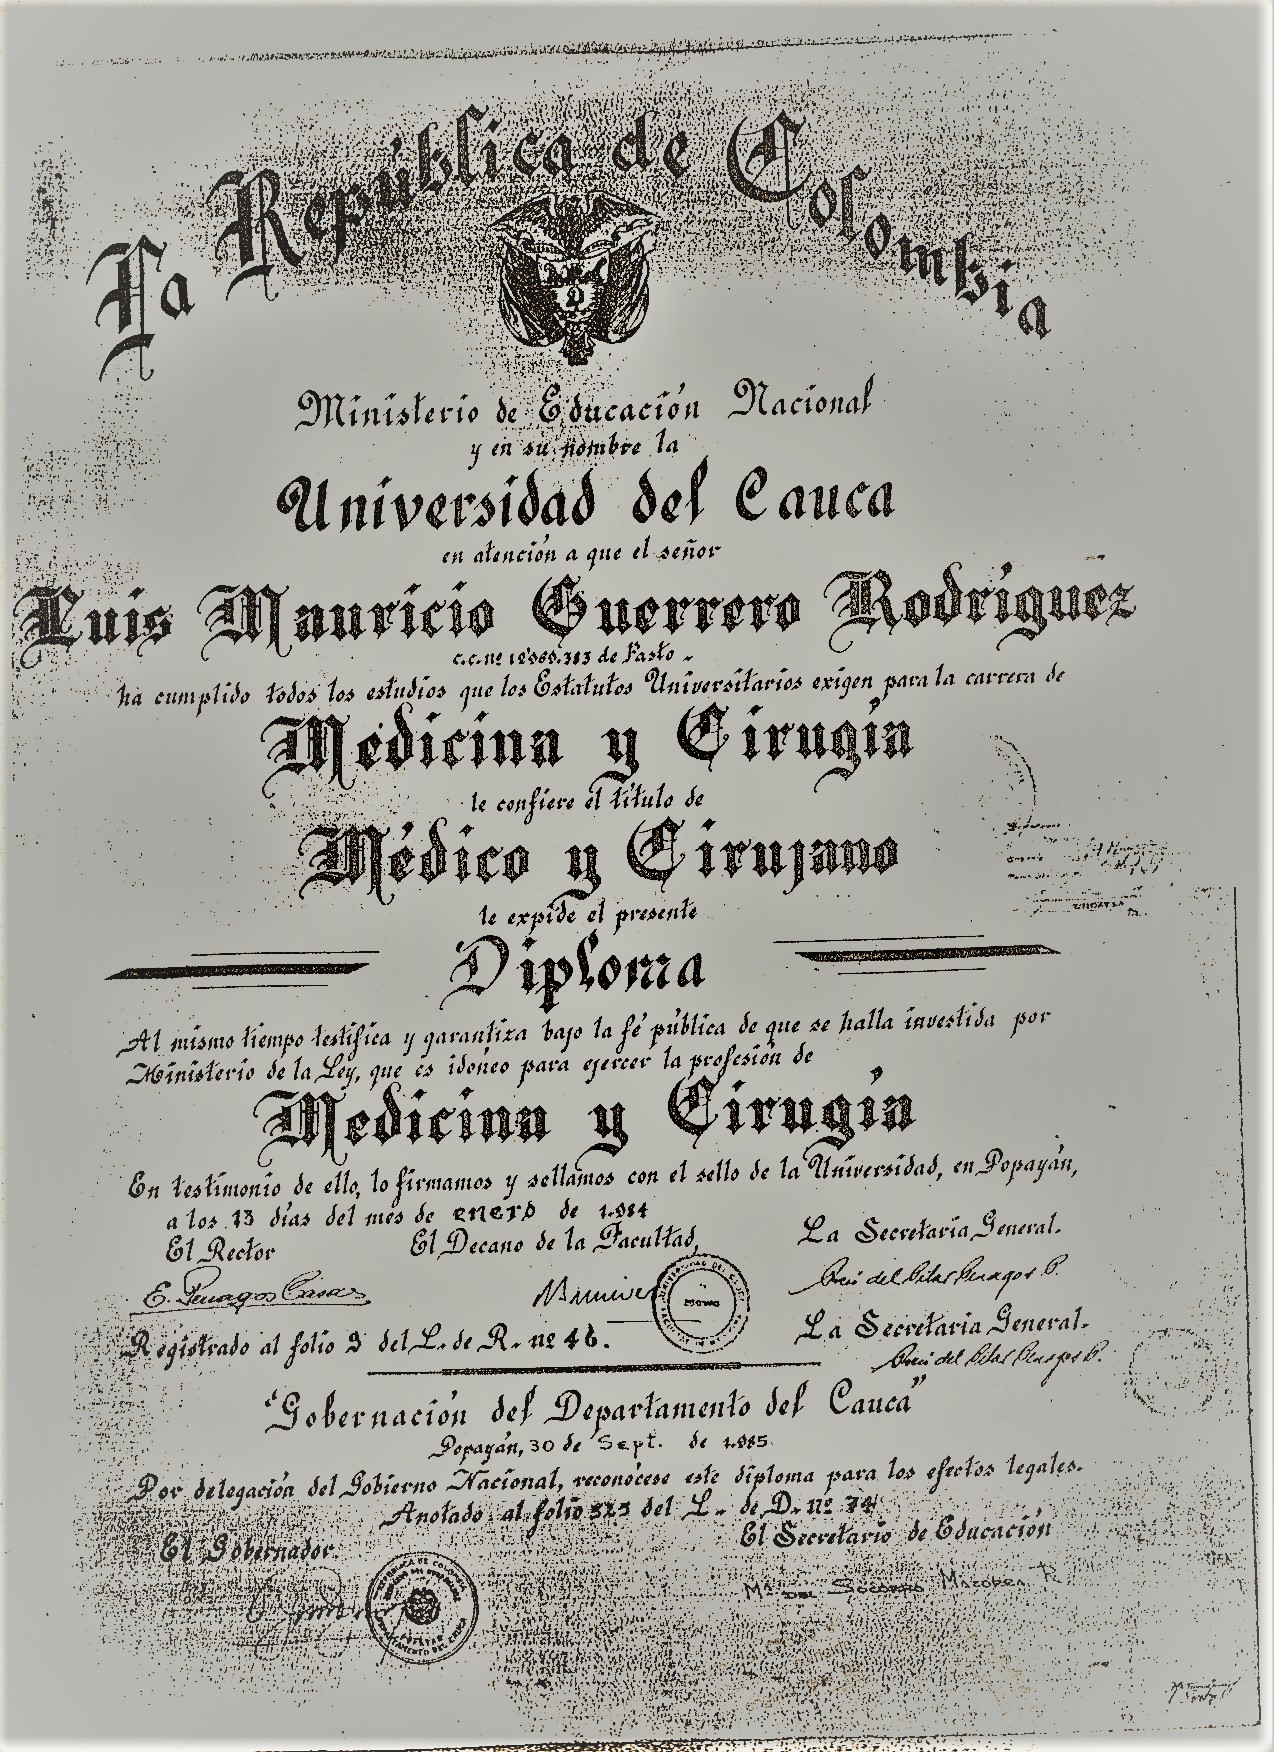 La República de Colombia
Ministerio de Educación Nacional
y en su nombre la
Universidad del Cauca
en atención a que el señor
Luis Mauricio Guerrero Rodríguez
c.c. nº de Pasto
ha cumplido todos los estudios que los Estatutos Universitarios exigen para la carrera de
Medicina y Cirugía
le confiere el título de
Médico y Cirujano
le expide el presente
Diploma
Al mismo tiempo testifica y garantiza bajo la fé pública de que se halla investida por
Ministerio de la Ley, que es idóneo para ejercer la profesión de
Medicina y Cirugía
En testimonio de ello, lo firmamos y sellamos con el sello de la Universidad, en Popayán,
a los 13 días del mes de enero de 1.984
El Rector El Decano de la Facultad, La Secretaria General.
E. Penagos Casas
Registrado al folio 9 del L. de R. nº 46. La Secretaria General.
"Gobernación del Departamento del Cauca"
Popayán, 30 de Sept. de 1.985
Por delegación del Gobierno Nacional, reconócese este diploma para los efectos legales.
Anotado al folio 323 del L. de D. nº 74
El Gobernador. El Secretario de Educación
Mª del Socorro R.